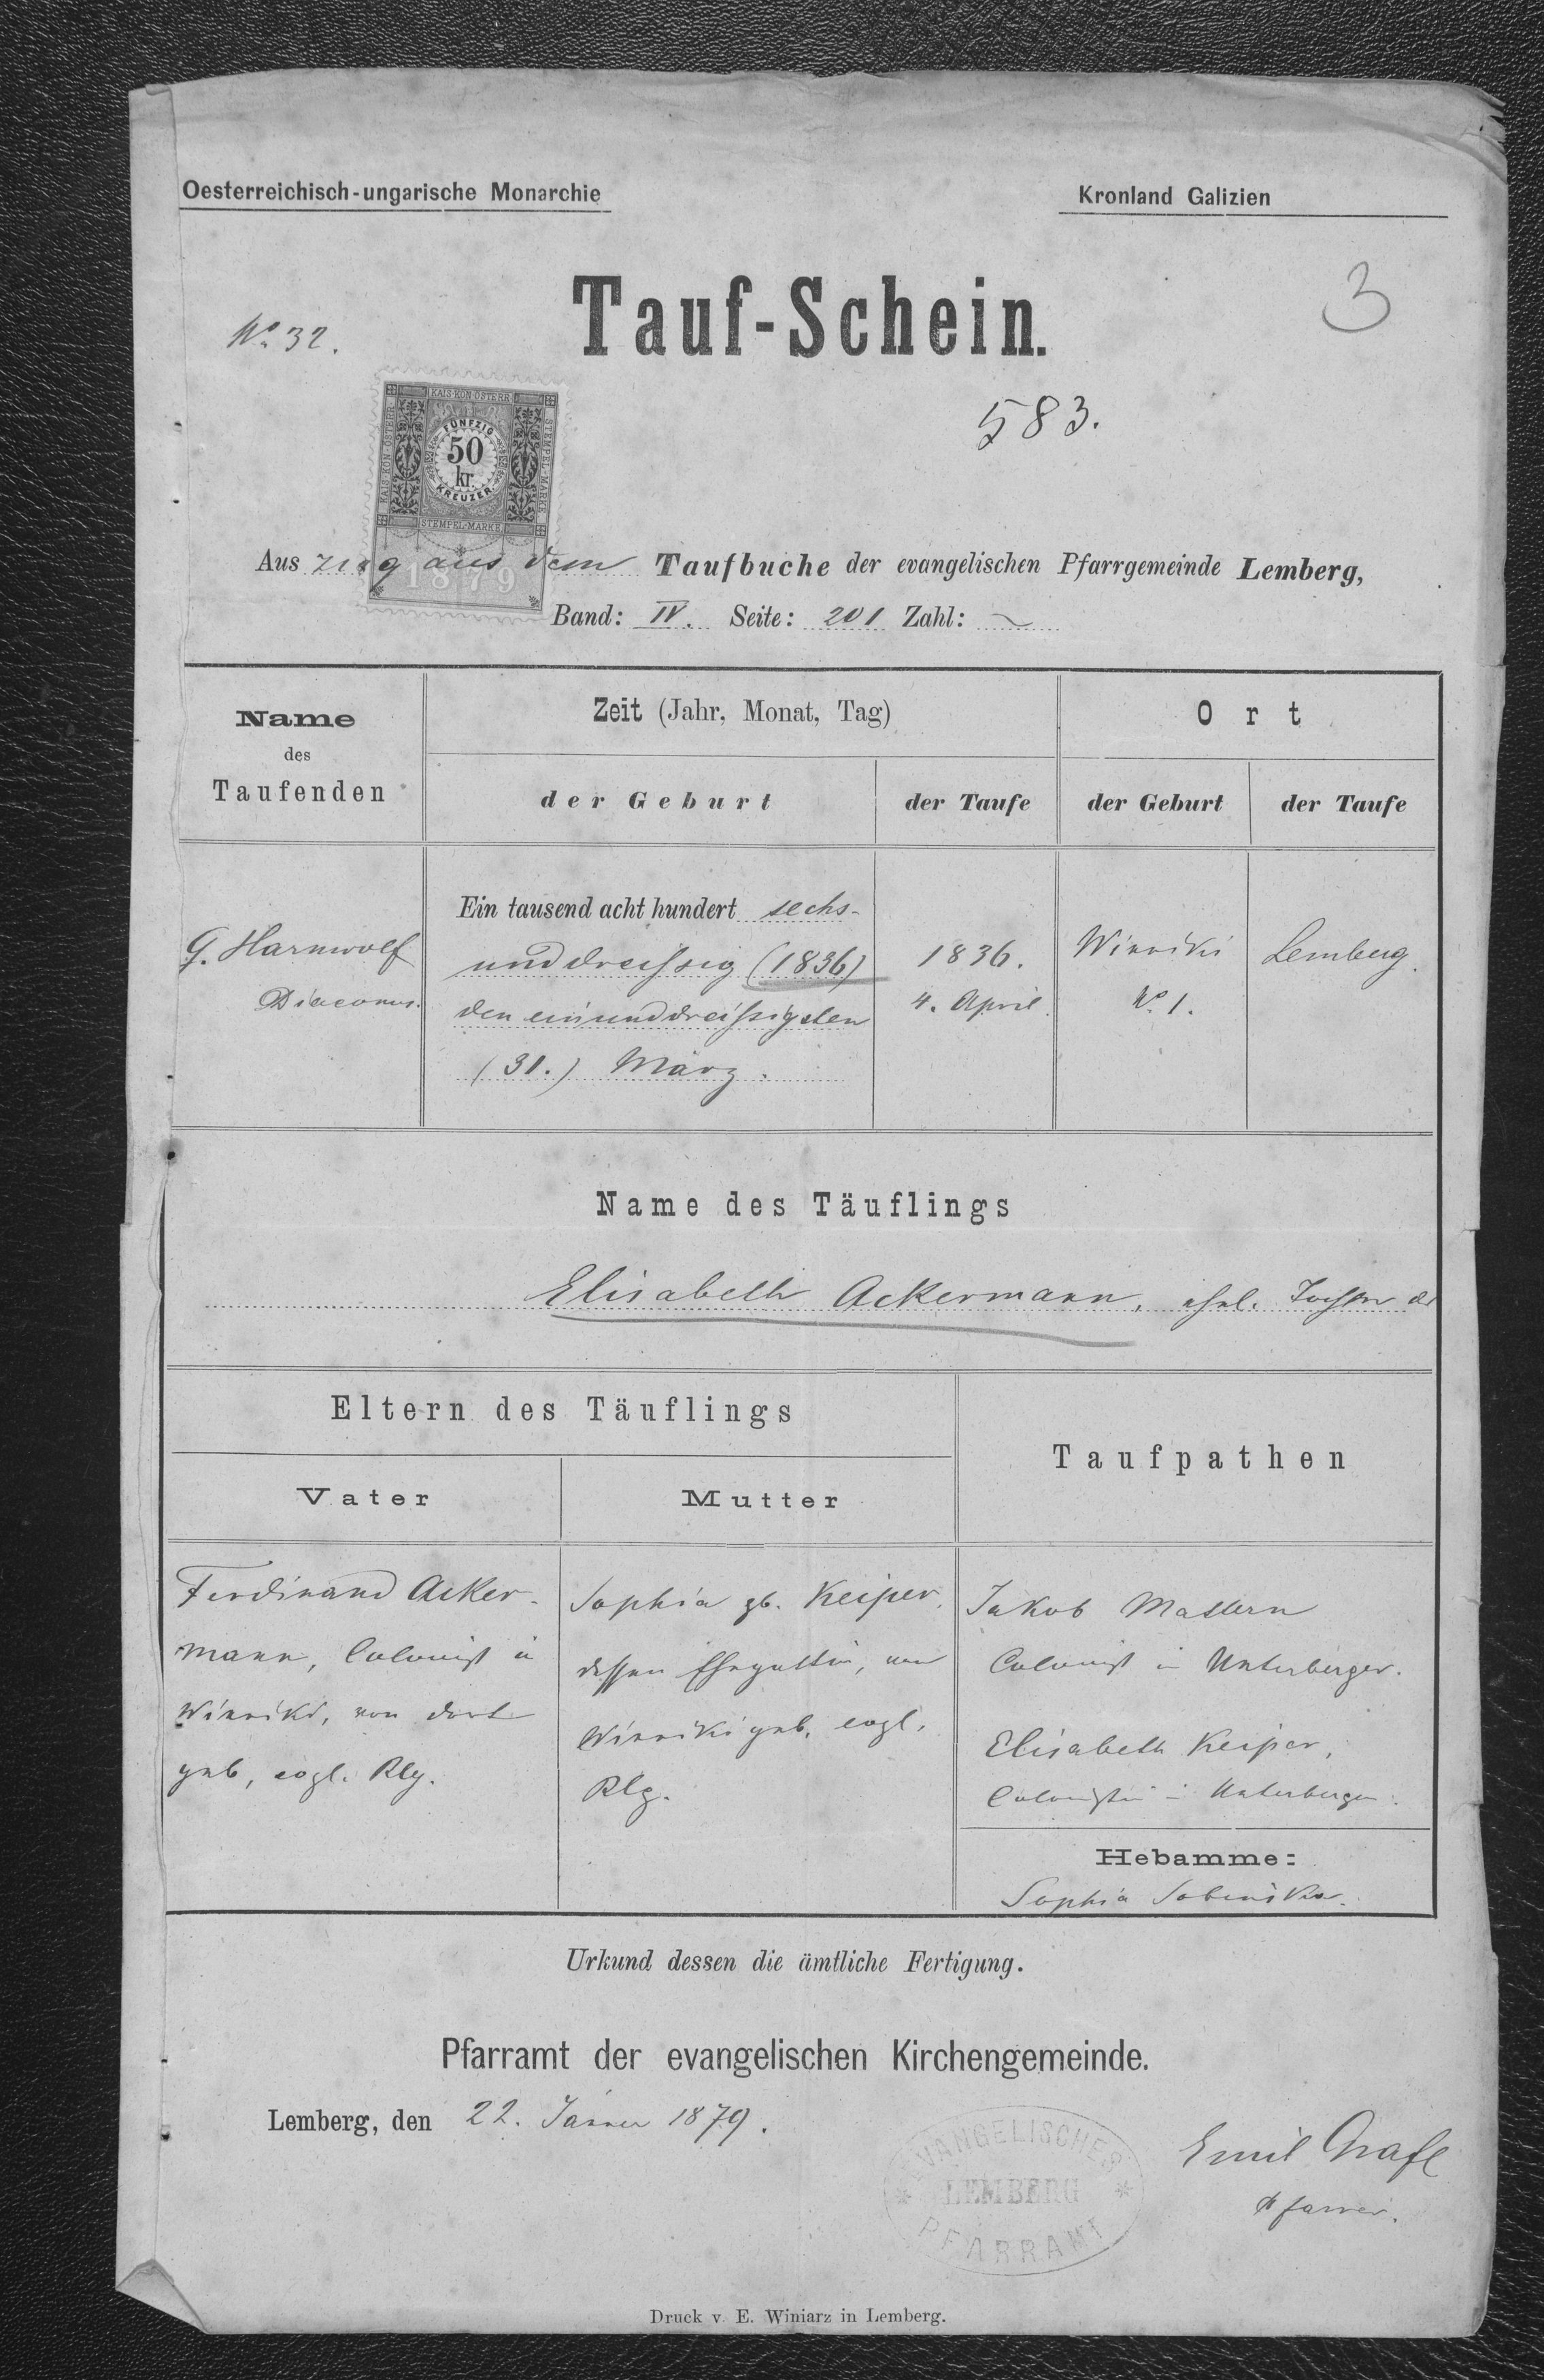 Oesterreichisch-ungarische Monarchie
Kronland Galizien
Tauf-Schein.
3
No 32.
583.
KAIS·KÖN·ÖSTERR.
KAIS·KÖN·ÖSTERR.
STEMPEL-MARKE
FÜNFZIG
50
kr.
KREUZER
STEMPEL-MARKE
1879
Aus zug aus dem Taufbuche der evangelischen Pfarrgemeinde Lemberg,
Band: IV. Seite: 201 Zahl: ~
Name
des
Taufenden
Zeit (Jahr, Monat, Tag)
Ort
der Geburt
der Taufe
der Geburt
der Taufe
G. Harnwolf
Diaconus.
Ein tausend acht hundert sechs-
unddreissig (1836)
den einunddreissigsten
(31.) März.
1836.
4. April.
Winniki
No 1.
Lemberg.
Name des Täuflings
Elisabeth Ackermann, ehel. Tochter der
Eltern des Täuflings
Taufpathen
Vater
Mutter
Ferdinand Acker-
mann, Colonist in
Winniki, von dort
geb, evgl. Rlg.
Sophia gb. Keiper,
dessen Ehegattin, von
Winniki geb. evgl.
Rlg.
Jakob Mattern
Colonist in Unterbergen.
Elisabeth Keiper,
Colonistin in Unterbergen.
Hebamme:
Sophia
Urkund dessen die ämtliche Fertigung.
Pfarramt der evangelischen Kirchengemeinde.
Lemberg, den 22. Jänner 1879.
EVANGELISCHES
LEMBERG
PFARRAMT
Emil Grafl
Pfarrer.
Druck v. E. Winiarz in Lemberg.